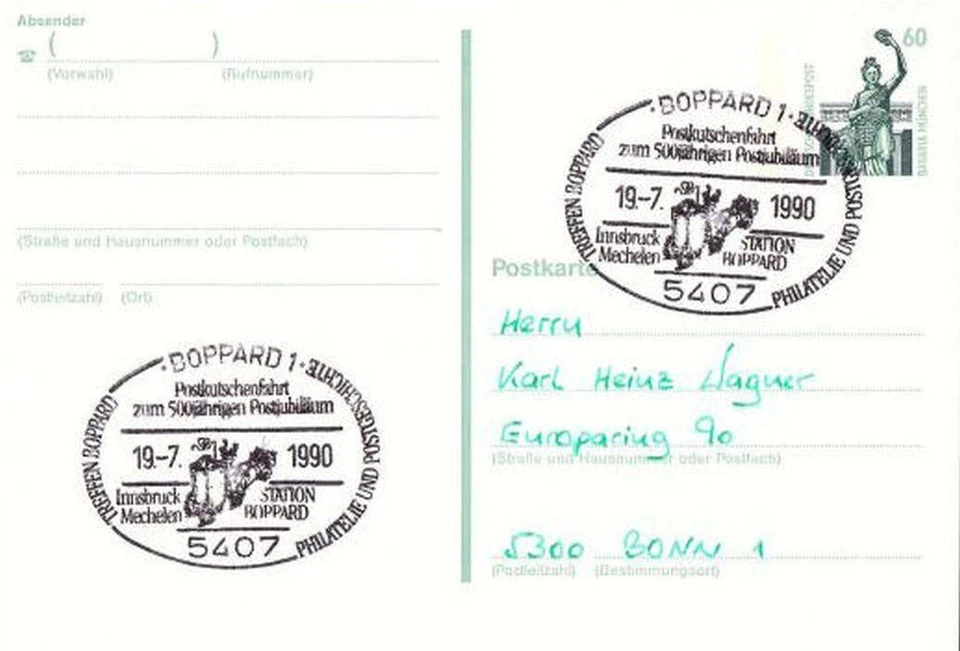 Absender
( )
(Vorwahl) (Rufnummer)
(Straße und Hausnummer oder Postfach)
(Postleitzahl) (Ort)
60
DEUTSCHE BUNDESPOST
BAVARIA MÜNCHEN
BOPPARD 1
TREFFEN BOPPARD PHILATELIE UND POSTGESCHICHTE
Postkutschenfahrt
zum 500jährigen Postjubiläum
19.-7. 1990
Innsbruck STATION
Mechelen BOPPARD
5407
Postkarte
Herrn
Karl Heinz Wagner
Europaring 90
(Straße und Hausnummer oder Postfach)
5300 BONN 1
(Postleitzahl) (Bestimmungsort)
BOPPARD 1
TREFFEN BOPPARD PHILATELIE UND POSTGESCHICHTE
Postkutschenfahrt
zum 500jährigen Postjubiläum
19.-7. 1990
Innsbruck STATION
Mechelen BOPPARD
5407